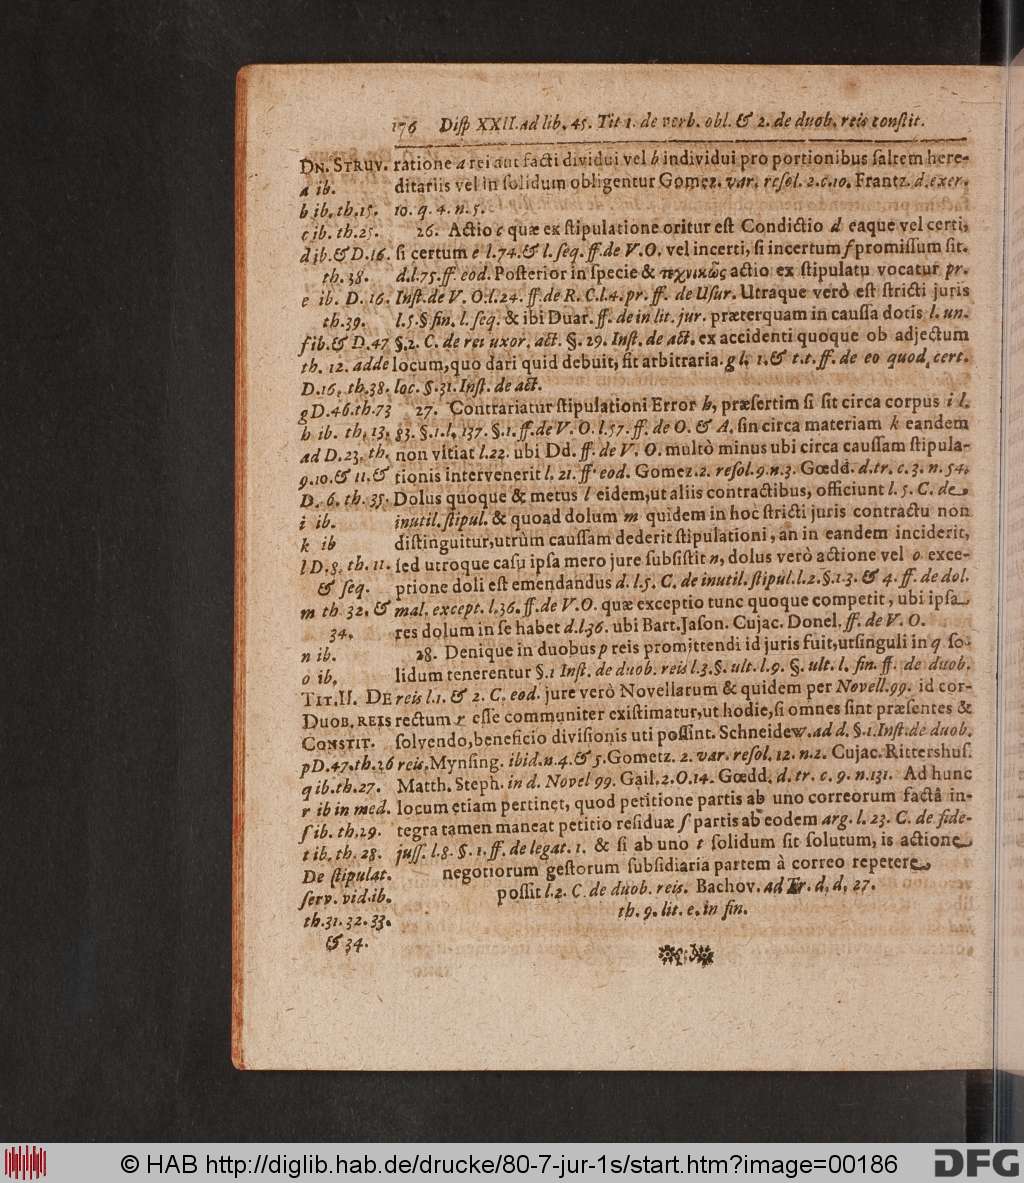 176 Diſp XXII. ad lib. 45. Tit 1. de verb. obl. & 2. de duob. reis conſtit.
DN. STRUV. ratione a rei aut facti dividui vel b individui pro portionibus ſaltem here-
a ib. ditariis vel in ſolidum obligentur Gomez. var. reſol. 2. c. 10. Frantz. d. exer.
b ib. th. 15. 10. q. 4. n. 5.
c ib. th. 25. 26. Actio c quæ ex ſtipulatione oritur eſt Condictio d eaque vel certi,
d ib. & D. 16. ſi certum e l. 74. & l. ſeq. ff. de V. O. vel incerti, ſi incertum f promiſſum ſit.
th. 38. d. l. 75. ff. eod. Poſterior in ſpecie & τεχνικῶς actio ex ſtipulatu vocatur pr.
e ib. D. 16. Inſt. de V. O. l. 24. ff. de R. C. l. 4. pr. ff. de Uſur. Utraque verò eſt ſtricti juris
th. 39. l. 5. § fin. l. ſeq. & ibi Duar. ff. de in lit. jur. præterquam in cauſſa dotis l. un.
f ib. & D. 47 §. 2. C. de rei uxor. act. §. 29. Inſt. de act. ex accidenti quoque ob adjectum
th. 12. adde locum, quo dari quid debuit, fit arbitraria. g l. 1. & t. t. ff. de eo quod cert.
D. 16. th. 38. loc. §. 31. Inſt. de act.
g D. 46. th. 73 27. Contrariatur ſtipulationi Error h, præſertim ſi ſit circa corpus i l.
h ib. th. 13. 83. §. 1. l. 137. §. 1. ff. de V. O. l. 57. ff. de O. & A. ſin circa materiam k eandem
ad D. 23. th. non vitiat l. 22. ubi Dd. ff. de V. O. multò minus ubi circa cauſſam ſtipula-
9. 10. & 11. & tionis intervenerit l. 21. ff. eod. Gomez. 2. reſol. 9. n. 3. Gœdd. d. tr. c. 3. n. 54.
D. 6. th. 35. Dolus quoque & metus l eidem, ut aliis contractibus, officiunt l. 5. C. de
i ib. inutil. ſtipul. & quoad dolum m quidem in hoc ſtricti juris contractu non
k ib diſtinguitur, utrùm cauſſam dederit ſtipulationi, an in eandem inciderit,
l D. 8. th. 11. ſed utroque caſu ipſa mero jure ſubſiſtit n, dolus verò actione vel o exce-
& ſeq. ptione doli eſt emendandus d. l. 5. C. de inutil. ſtipul. l. 2. §. 1. 3. & 4. ff. de dol.
m th 32. & mal. except. l. 36. ff. de V. O. quæ exceptio tunc quoque competit, ubi ipſa
34. res dolum in ſe habet d. l. 36. ubi Bart. Jaſon. Cujac. Donel. ff. de V. O.
n ib. 28. Denique in duobus p reis promittendi id juris fuit, ut ſinguli in q ſo-
o ib. lidum tenerentur §. 1 Inſt. de duob. reis l. 3. §. ult. l. 9. §. ult. l. fin. ff. de duob.
TIT. II. DE reis l. 1. & 2. C. eod. jure verò Novellarum & quidem per Novell. 99. id cor-
DUOB. REIS rectum r eſſe communiter exiſtimatur, ut hodie, ſi omnes ſint præſentes &
CONSTIT. ſolvendo, beneficio diviſionis uti poſſint. Schneidew. ad d. §. 1. Inſt. de duob.
p D. 47. th. 26 reis. Mynſing. ibid. n. 4. & 5. Gometz. 2. var. reſol. 12. n. 2. Cujac. Rittershuſ.
q ib. th. 27. Matth. Steph. in d. Novel 99. Gail. 2. O. 14. Gœdd. d. tr. c. 9. n. 131. Ad hunc
r ib in med. locum etiam pertinet, quod petitione partis ab uno correorum factâ in-
ſ ib. th. 29. tegra tamen maneat petitio reſiduæ ſ partis ab eodem arg. l. 23. C. de fide-
t ib. th. 28. juſſ. l. 8. §. 1. ff. de legat. 1. & ſi ab uno t ſolidum ſit ſolutum, is actione
De ſtipulat. negotiorum geſtorum ſubſidiaria partem à correo repetere
ſerv. vid. ib. poſſit l. 2. C. de duob. reis. Bachov. ad Tr. d. d. 27.
th. 31. 32. 33. th. 9. lit. e. in fin.
& 34.
© HAB http://diglib.hab.de/drucke/80-7-jur-1s/start.htm?image=00186
DFG